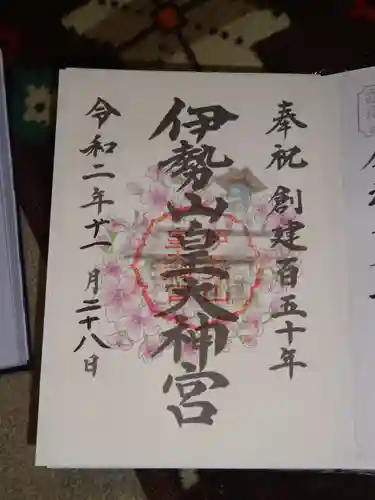 奉祝創建百五十年
伊勢山皇大神宮
令和二年十一月二十八日